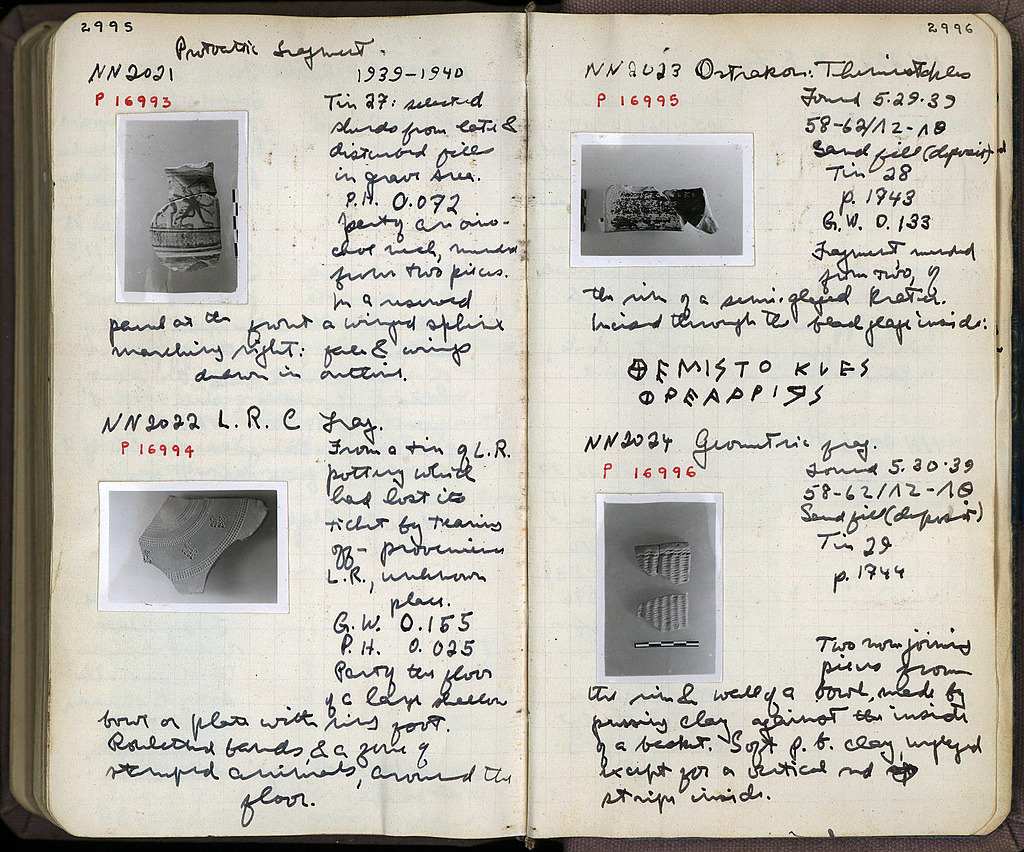 2995
Protoattic fragment.
NN2021
1939-1940
P 16993
Tin 27: selected
sherds from late &
disturbed fills
in grave area.
P.H. 0.072
Part of an oino-
choe neck, mended
from two pieces.
In a reserved
panel at the front a winged sphinx
marching right: face & wings
drawn in outline.
NN2022 L. R. C Frag.
P 16994
From a tin of L.R.
pottery which
had lost its
ticket by tearing
off - provenience
L.R., unknown
place.
G.W. 0.155
P.H. 0.025
Part of the floor
of a large shallow
bowl or plate with ring foot.
Rouletted bands, & a zone of
stamped animals, around the
floor.
2996
NN2023 Ostrakon: Themistokles
P 16995
Found 5.29.39
58-62/ΛΖ-ΛΘ
Sand fill (deposit)
Tin 28
p. 1743
G.W. 0.133
Fragment, mended
from two, of
the rim of a semi-glazed krater.
Incised through the black glaze inside:
ΘEMISTO KLES
ΘPEAPPIOS
NN2024 Geometric frag.
P 16996
Found 5.30.39
58-62/ΛΖ-ΛΘ
Sand fill (deposit)
Tin 29
p. 1744
Two non joining
pieces from
the rim & wall of a bowl, made by
pressing clay against the inside
of a basket. Soft p. b. clay, unglazed
except for a vertical red
stripe inside.